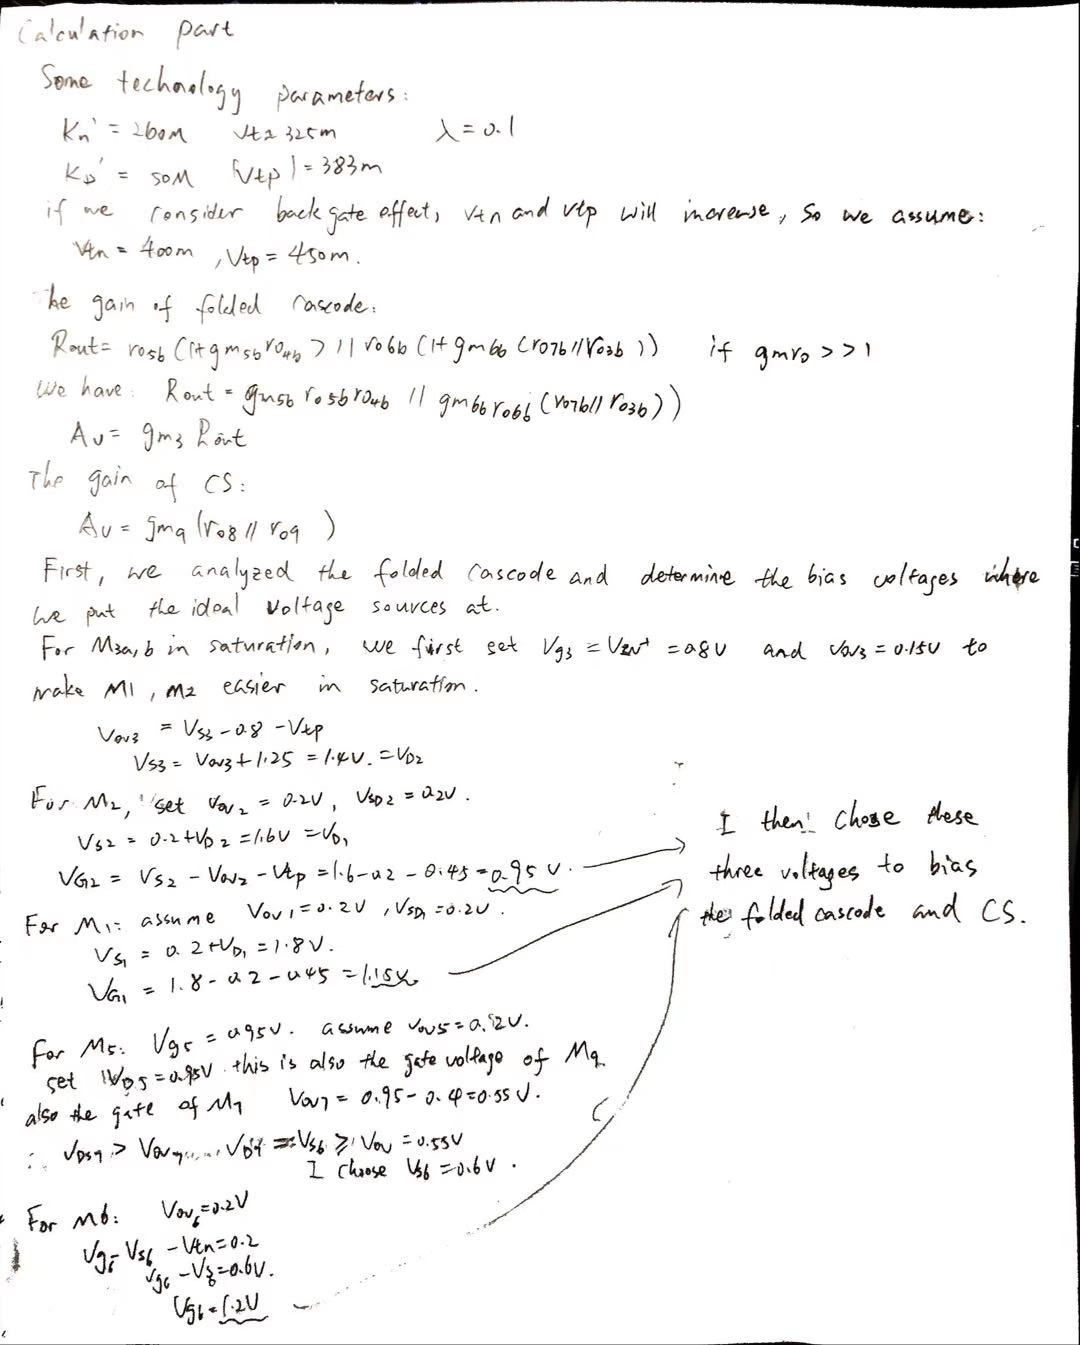 Calculation part
Some technology parameters:
Kn' = 260M Vt= 325m λ = 0.1
Kp' = 50M |Vtp| = 383m
if we consider back gate effect, Vtn and Vtp will increase, so we assume:
Vtn = 400m , Vtp = 450m.
The gain of folded cascode:
Rout= ro5b (1+ gm5b ro4b) || ro6b (1+ gm6b (ro7b || ro3b)) if gmro >> 1
We have: Rout = gm5b ro5b ro4b || gm6b ro6b (ro7b || ro3b))
Av= gm3 Rout
The gain of CS:
Av = gm9 (ro8 || ro9 )
First, we analyzed the folded cascode and determine the bias voltages where
we put the ideal voltage sources at.
For M3a,b in saturation, we first set Vg3 = VIN+ = 0.8V and Vov3 = 0.15V to
make M1, M2 easier in saturation.
Vov3 = VS3 - 0.8 - Vtp
VS3 = Vov3 + 1.25 = 1.4V. = VD2
For M2, set Vov2 = 0.2V, VSD2 = 0.2V.
VS2 = 0.2+VD2 = 1.6V = VD1
VG2 = VS2 - Vov2 - Vtp = 1.6 - 0.2 - 0.45 = 0.95 V.
I then chose these
three voltages to bias
the folded cascode and CS.
For M1: assume Vov1 = 0.2V , VSD1 = 0.2V.
VS1 = 0.2+VD1 = 1.8V.
VG1 = 1.8 - 0.2 - 0.45 = 1.15V
For M5: Vg5 = 0.95V. assume Vov5 = 0.2V.
set VD5 = 0.95V this is also the gate voltage of M9
also the gate of M7 Vov7 = 0.95 - 0.4 = 0.55V.
∴ VDS7 > Vov7 VD7 = VS6 ≥ Vov = 0.55V
I choose VS6 = 0.6V.
For M6: Vov6 = 0.2V
Vg6 - VS6 - Vtn = 0.2
Vg6 - VS6 = 0.6V.
Vg6 = 1.2V